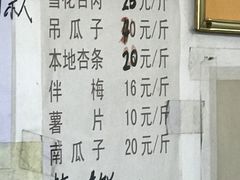 雪花杏肉 20元/斤
吊瓜子 40元/斤
本地杏条 20元/斤
伴梅 16元/斤
薯片 10元/斤
南瓜子 20元/斤